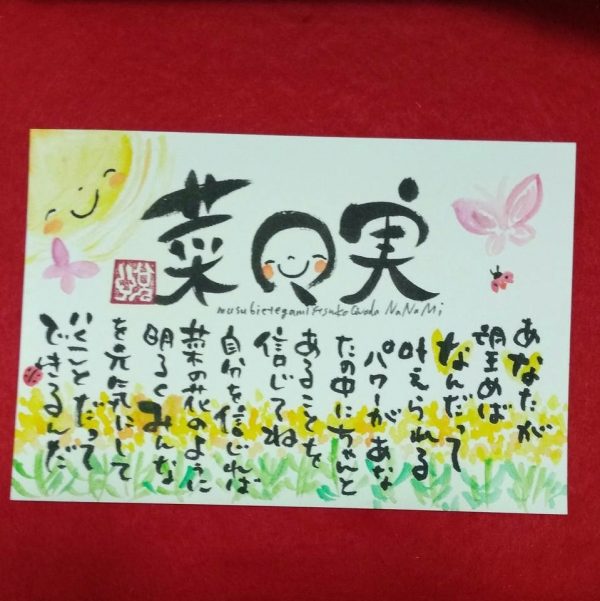 菜 実
musubietegami NaNaMi
あなたが
望めば
なんだって
叶えられる
パワーがあな
たの中にちゃんと
あることを
信じてね
自分を信じれば
菜の花のように
明るくみんな
を元気にして
いくことだって
できるんだ